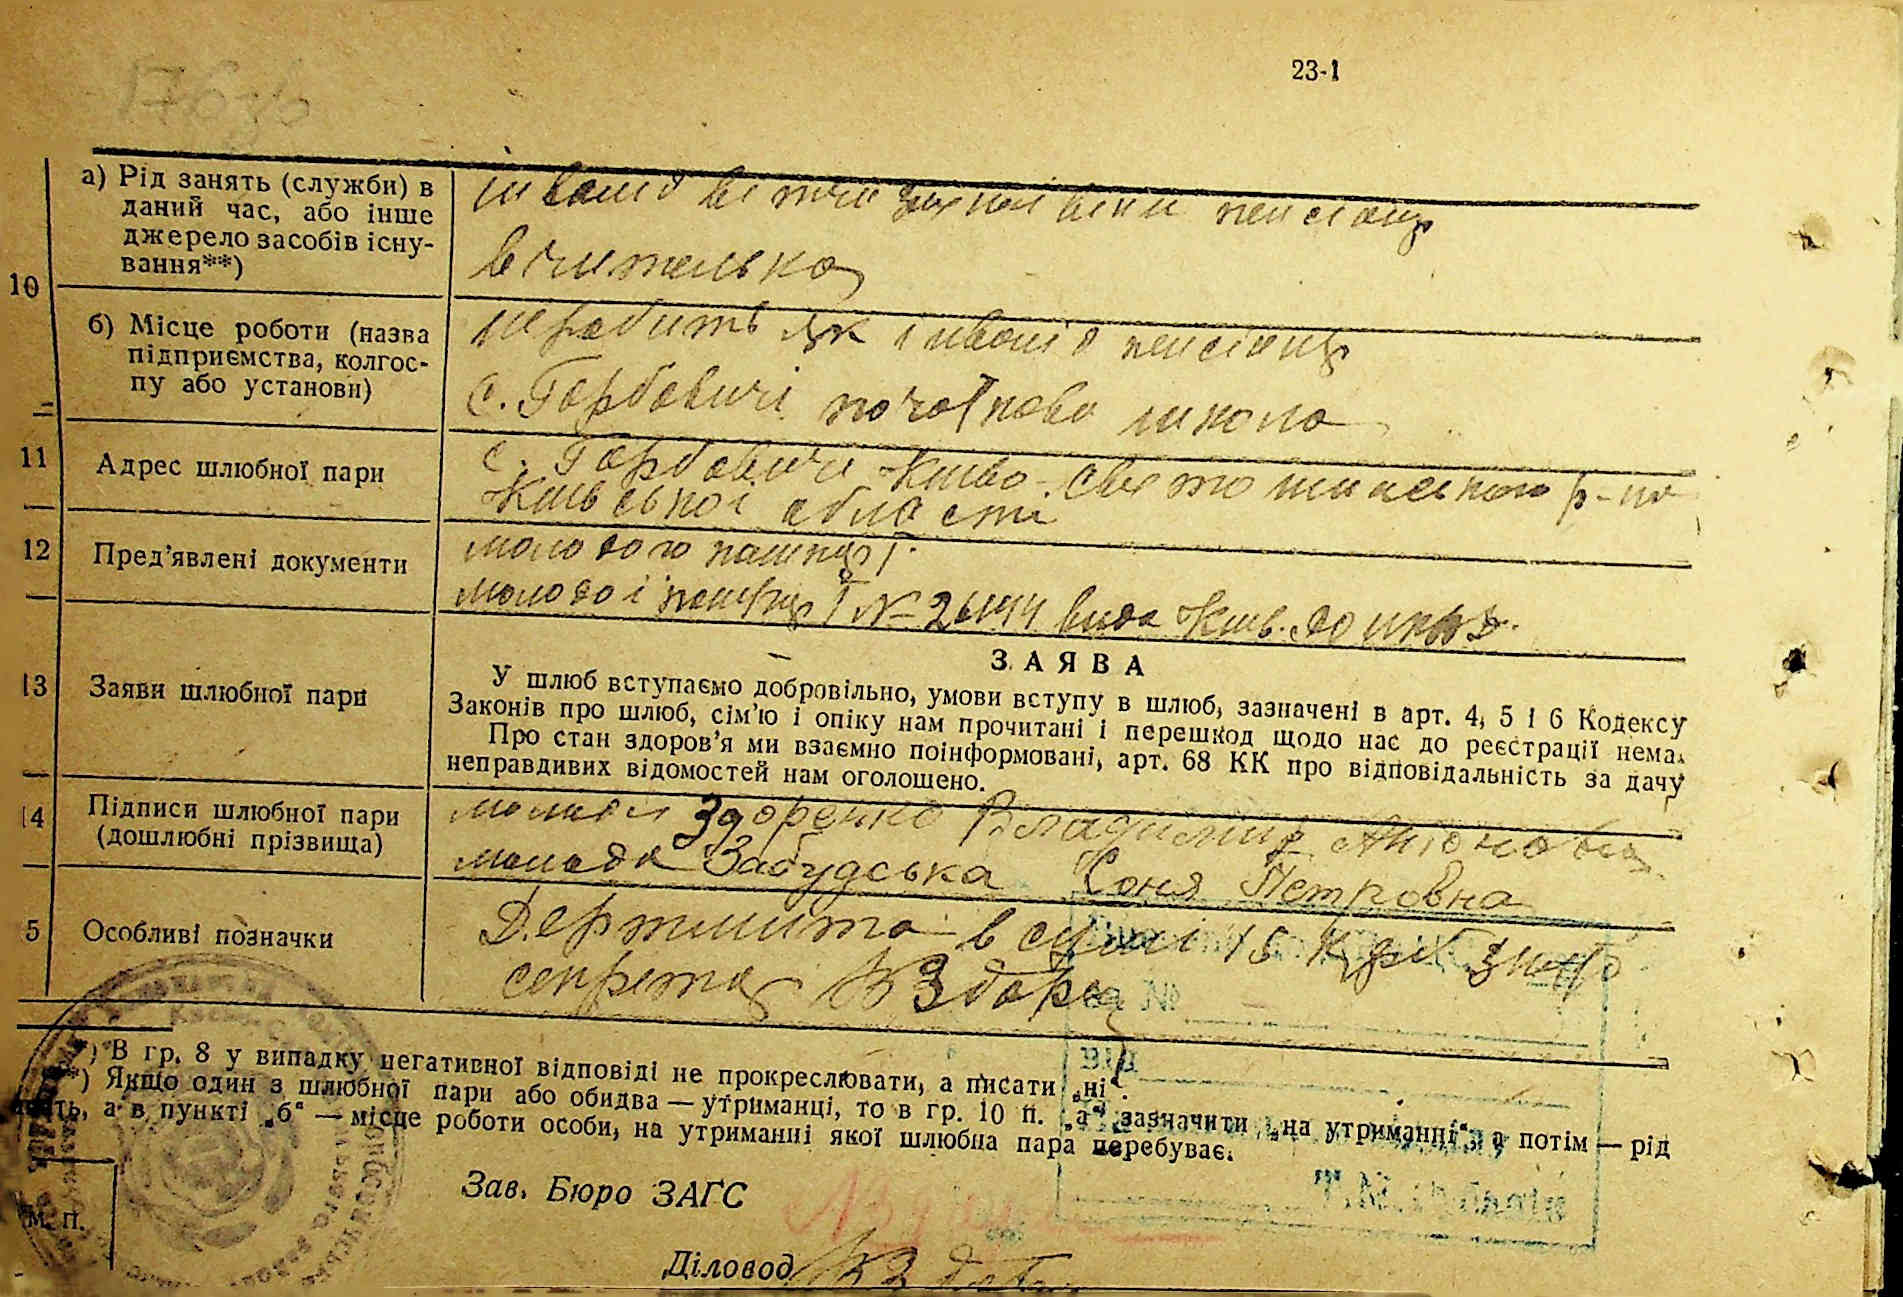 23-1
а) Рід занять (служби) в
даний час, або інше
джерело засобів існу-
вання**)
інвалід вітчизняної війни пенсіонер
вчителька
10
б) Місце роботи (назва
підприємства, колгос-
пу або установи)
не робить як інвалід пенсіонер
с. Горбовичі початкова школа
11
Адрес шлюбної пари
с. Горбовичі Києво-Святошинського р-ну
Київської області
12
Пред’явлені документи
молодого пашпорт
молодої пашпорт №
13
Заяви шлюбної пари
ЗАЯВА
У шлюб вступаємо добровільно, умови вступу в шлюб, зазначені в арт. 4, 5 і 6 Кодексу
Законів про шлюб, сім’ю і опіку нам прочитані і перешкод щодо нас до реєстрації нема.
Про стан здоров’я ми взаємно поінформовані, арт. 68 КК про відповідальність за дачу
неправдивих відомостей нам оголошено.
14
Підписи шлюбної пари
(дошлюбні прізвища)
Здоренко Владимир Антонович
молода Забудська Соня Петровна
5
Особливі позначки
Держмито в сумі 15 крб
секретар
*) В гр. 8 у випадку негативної відповіді не прокреслювати, а писати „ні“.
**) Якщо один з шлюбної пари або обидва — утриманці, то в гр. 10 п. „а“ зазначити „на утриманні“, а потім — рід
занять, а в пункті „б“ — місце роботи особи, на утриманні якої шлюбна пара перебуває.
Зав. Бюро ЗАГС
м. п.
Діловод